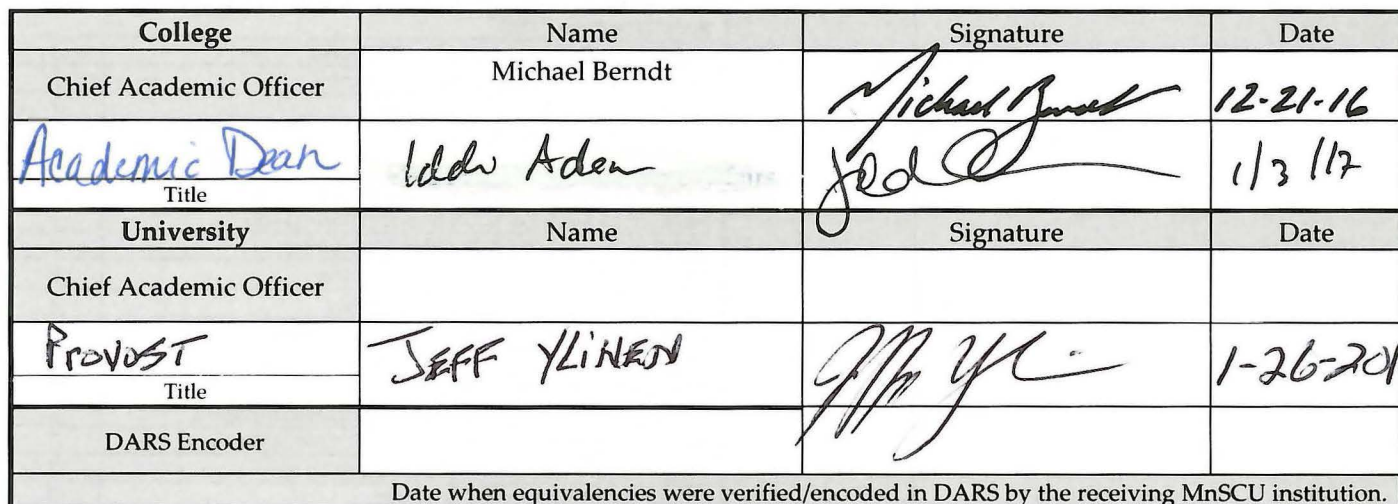 College Name Signature Date
Chief Academic Officer Michael Berndt Michael Berndt 12-21-16
Academic Dean Aden 1/3/17
Title
University Name Signature Date
Chief Academic Officer
Provost JEFF YLINEN 1-26-201
Title
DARS Encoder
Date when equivalencies were verified/encoded in DARS by the receiving MnSCU institution